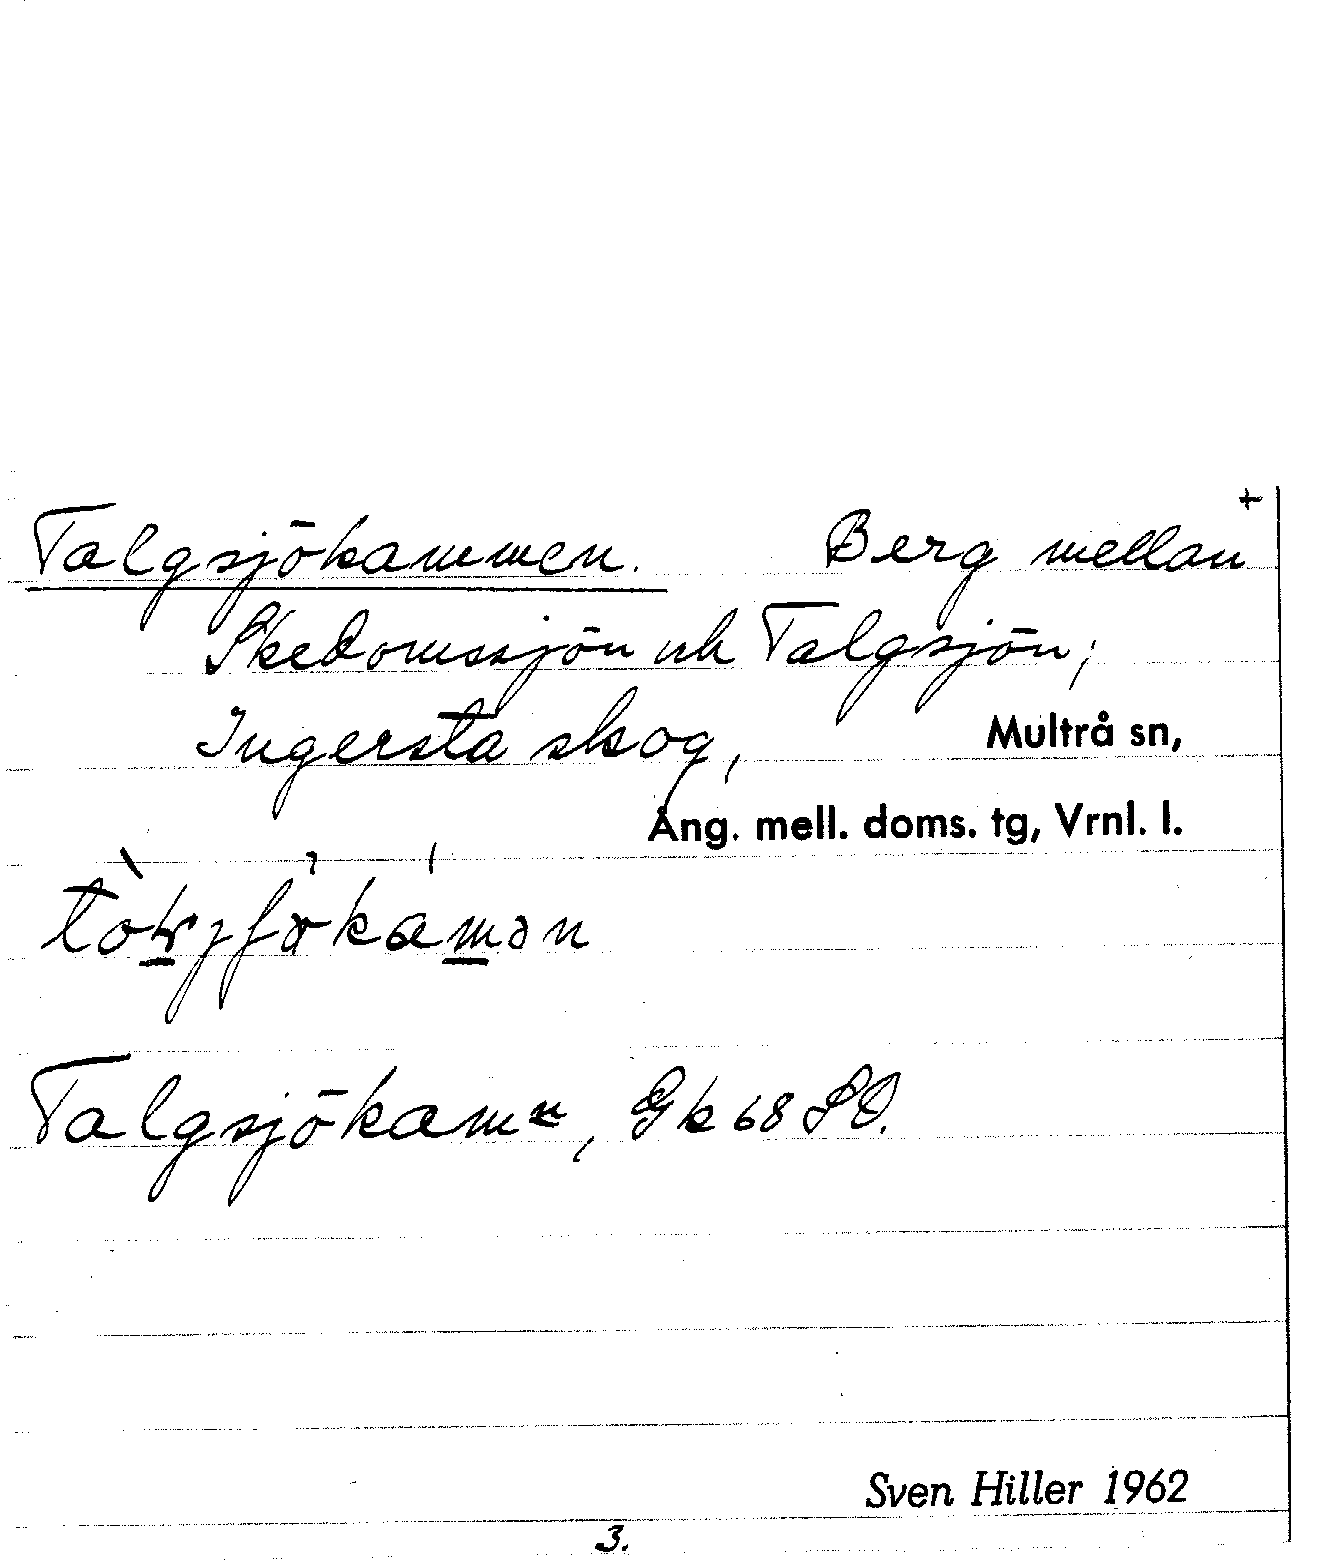 +
Talgsjökammen. Berg mellan
Skedomssjön och Talgsjön;
Ingersta skog, Multrå sn,
Ång. mell. doms. tg, Vrnl. l.
Talgsjökamn, Gk 68 SO.
Sven Hiller 1962
3.